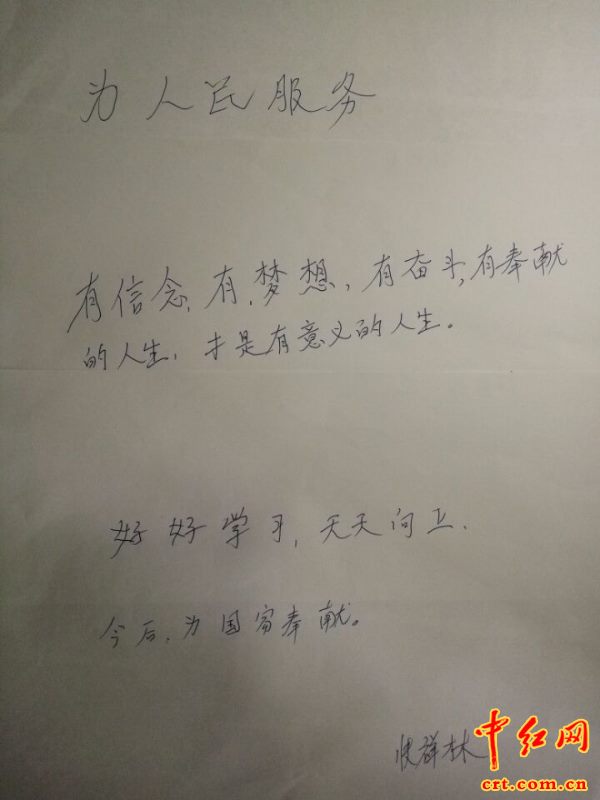 为人民服务
有信念，有梦想，有奋斗，有奉献
的人生，才是有意义的人生。
好好学习，天天向上．
今后，为国家奉献。
群林
中红网
crt.com.cn